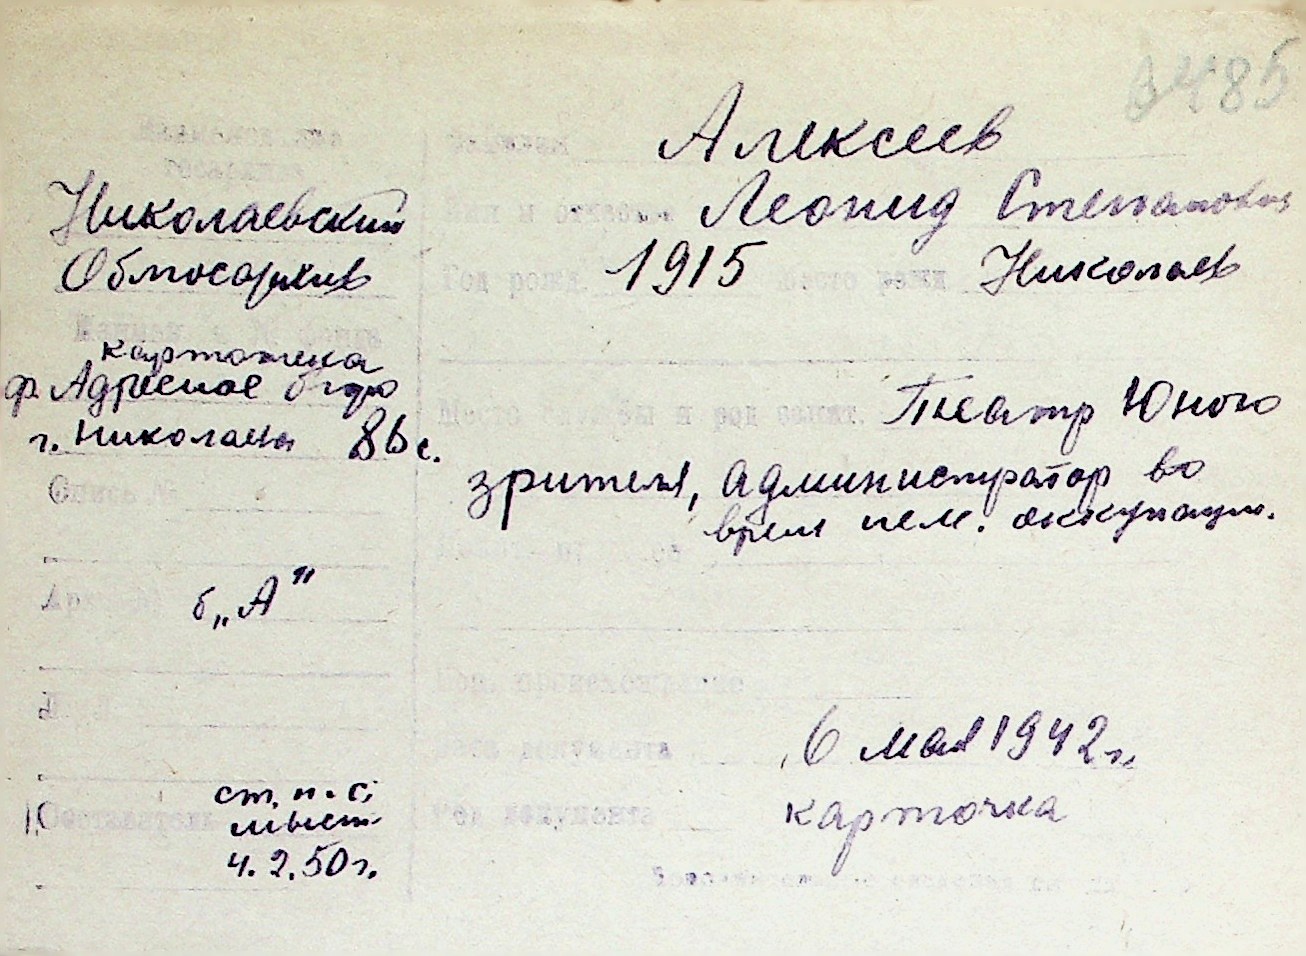 3485
Наименов. лва
госархива
Николаевский
Облгосархив
Наимен. и № фонда
картотека
ф. Адресное бюро
г. Николаева 86 с.
Опись №
б „А"
Составитель
ст. н. с.
4.2.50 г.
Фамилия Алексеев
Имя и отчество Леонид Степанович
Год рожд. 1915 Место рожд Николаев
Место службы и род занят. Театр Юного
зрителя, администратор во
время нем. оккупации.
Соц. происхождение
Дата документа 6 мая 1942 г.
Род документа карточка